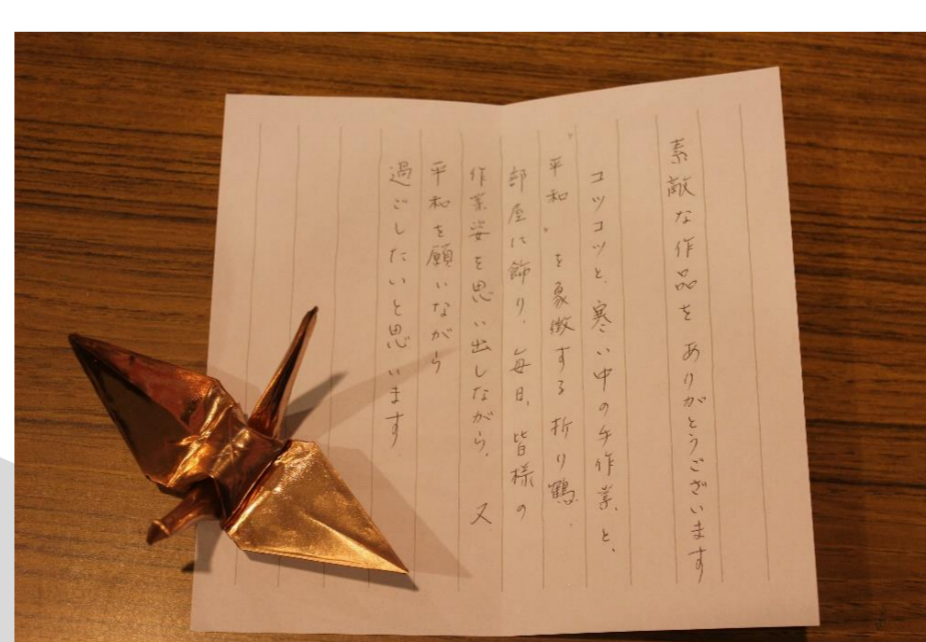 素敵な作品をありがとうございます
コツコツと、寒い中の手作業と、
"平和"を象徴する折り鶴、
部屋に飾り、毎日、皆様の
作業姿を思い出しながら、又
平和を願いながら
過ごしたいと思います